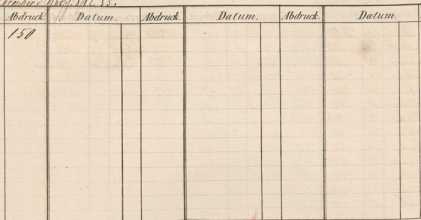 Abdruck. Datum. Abdruck. Datum. Abdruck. Datum.
150